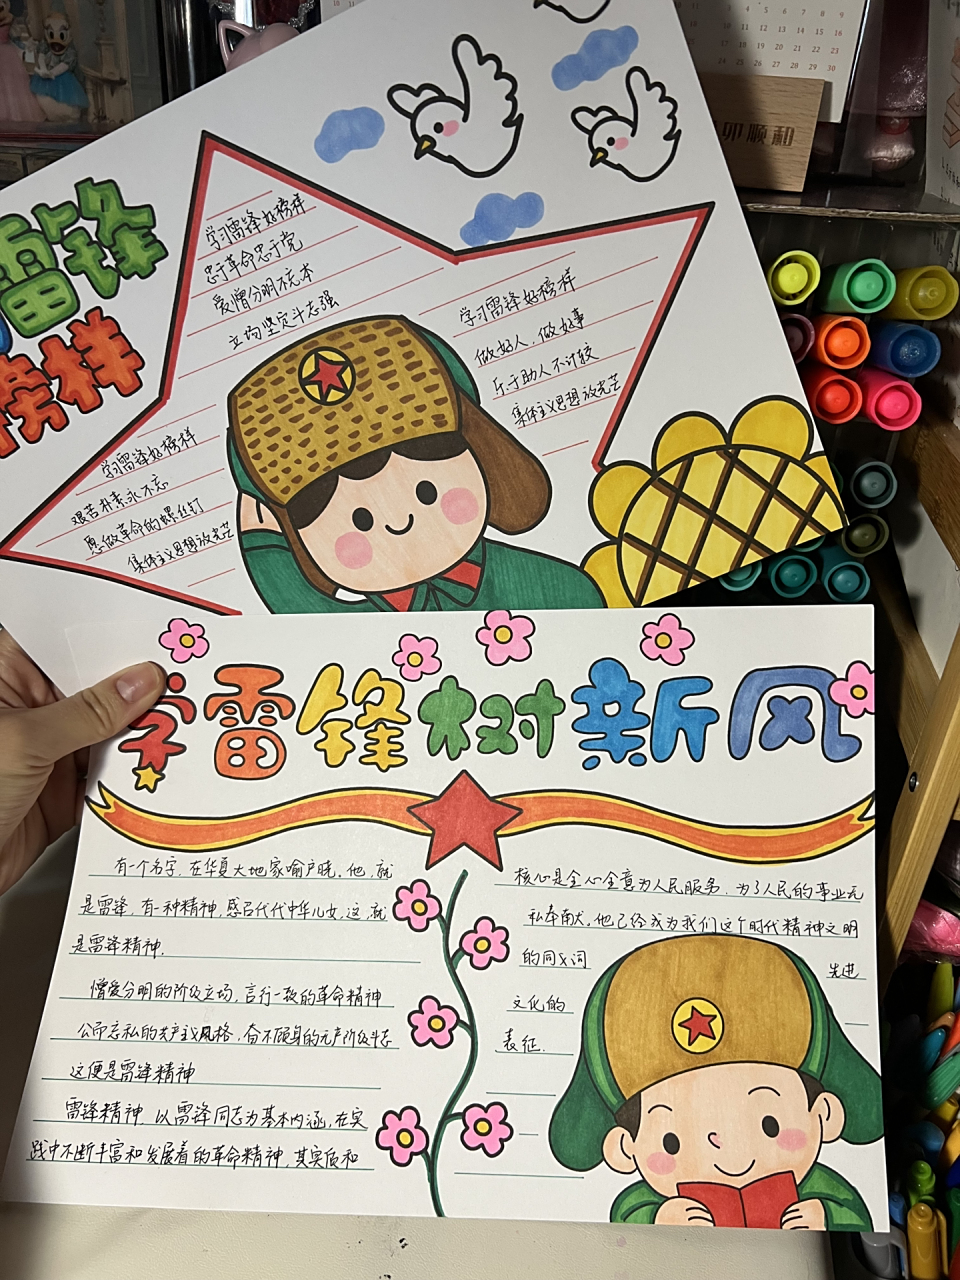 雷锋
榜样
学习雷锋好榜样
忠于革命忠于党
爱憎分明不忘本
立场坚定斗志强
学习雷锋好榜样
做好人，做好事
乐于助人不计较
集体主义思想放光芒
学习雷锋好榜样
艰苦朴素永不忘
愿做革命的螺丝钉
集体主义思想放光芒
学雷锋树新风
有一个名字，在华夏大地家喻户晓，他，就
是雷锋，有一种精神，感召代代中华儿女，这，就
是雷锋精神.
憎爱分明的阶级立场，言行一致的革命精神
公而忘私的共产主义风格，奋不顾身的无产阶级斗志
这便是雷锋精神
雷锋精神，以雷锋同志为基本内涵，在实
践中不断丰富和发展着的革命精神，其实质和
核心是全心全意为人民服务，为了人民的事业无
私奉献，他已经成为我们这个时代精神文明
的同义词
先进
文化的
表征.
顺和